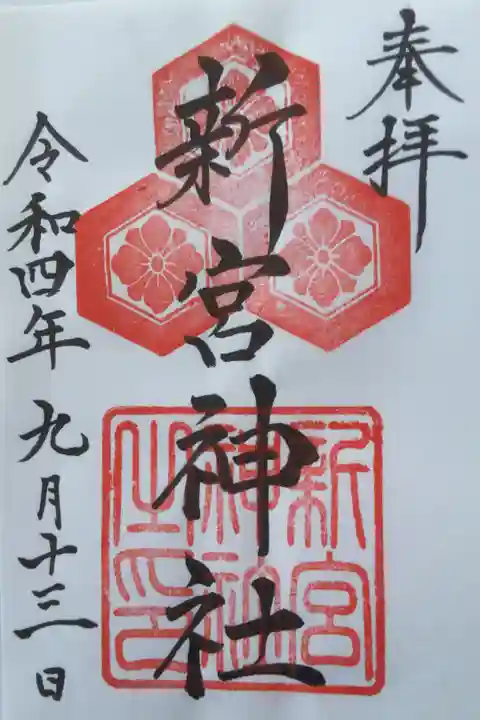 奉拝
新宮神社
令和四年九月十三日
新宮
神社
之印